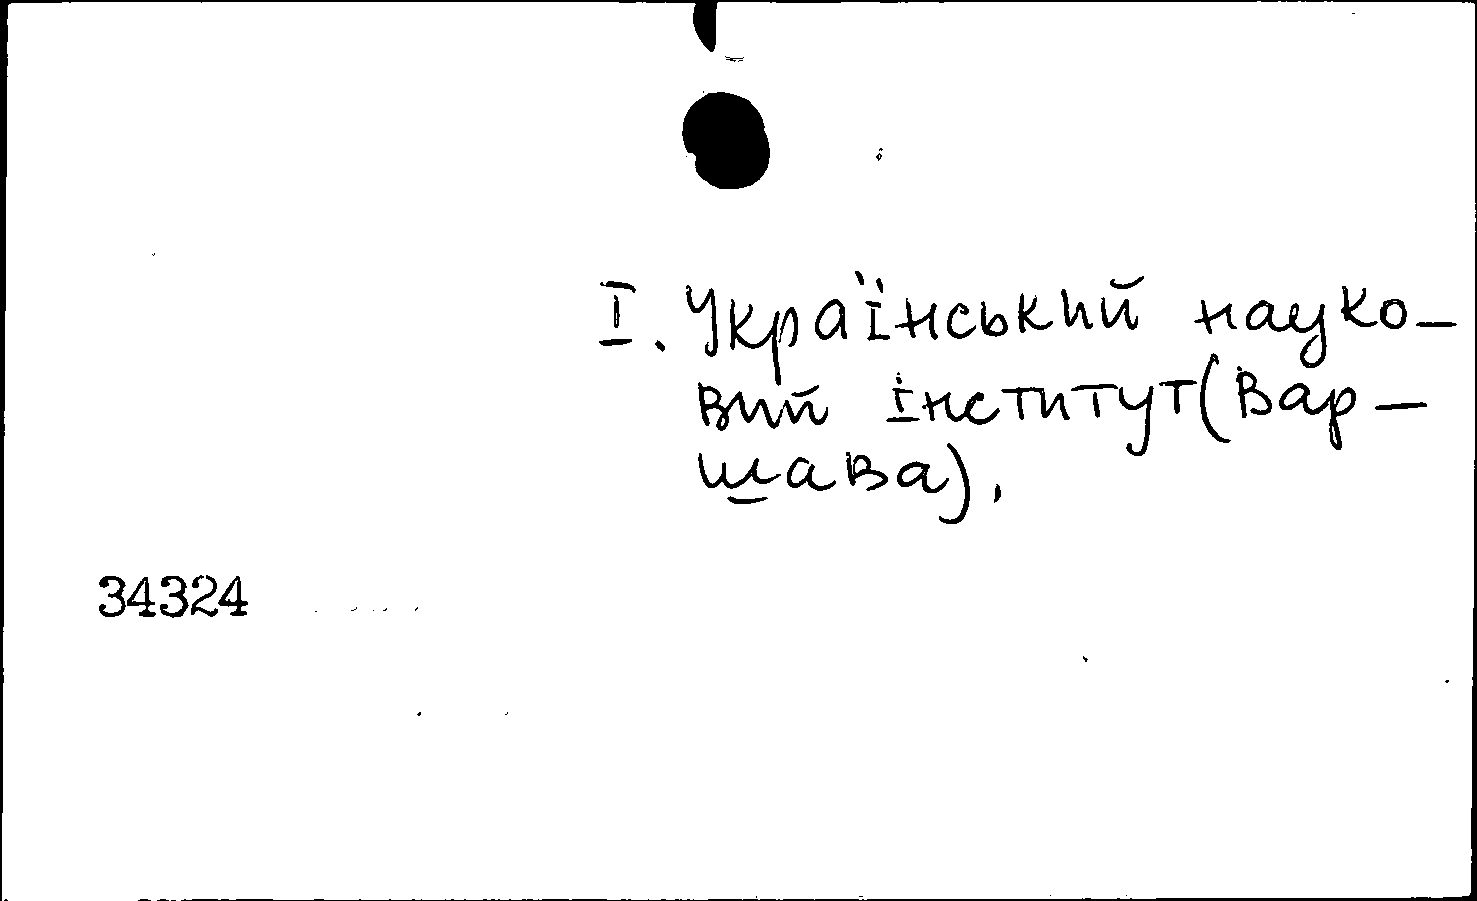 I. Український науко-
вий інститут (Вар-
шава).
34324